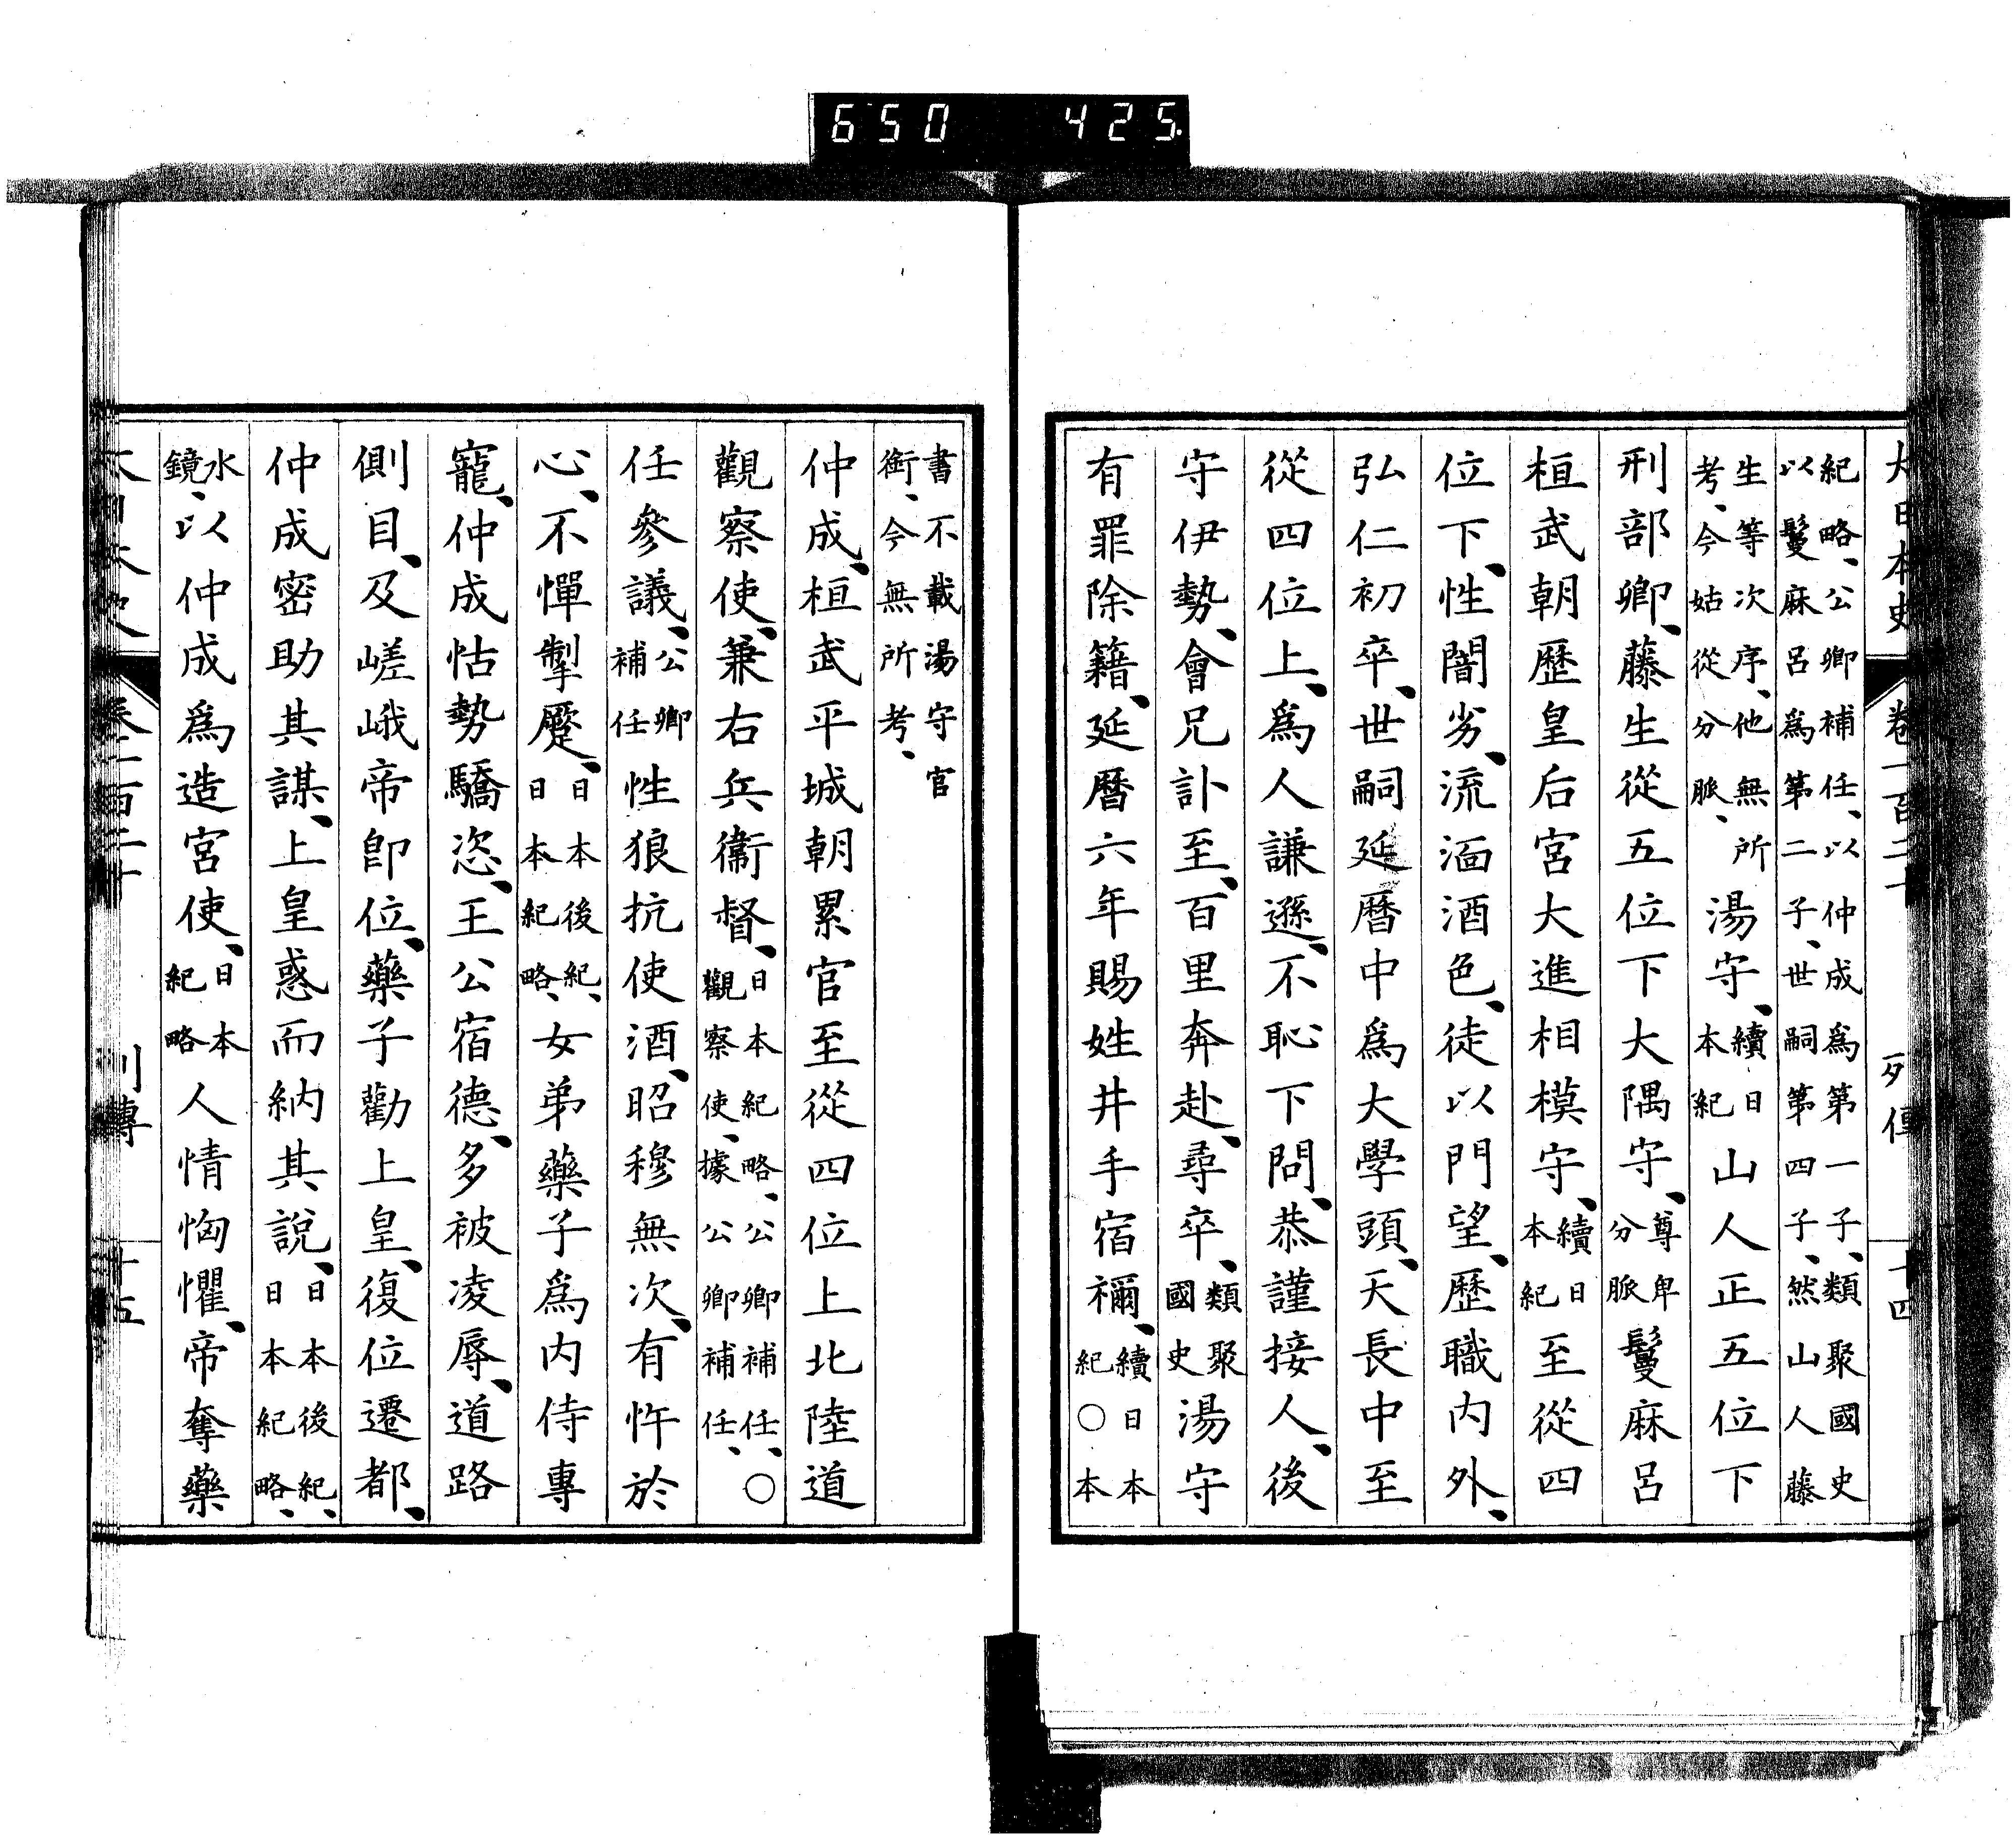 650 425.
大日本史 卷一百二十 列傳 十四
紀略、公卿補任、以仲成爲第一子、類聚國史
以鬘麻呂爲第二子、世嗣第四子、然山人藤
生等次序、他無所
考、今姑從分脈、
湯守、
續日
本紀
山人正五位下
刑部卿、藤生從五位下大隅守、
尊卑
分脈
鬘麻呂
桓武朝歷皇后宮大進相模守、
續日
本紀
至從四
位下、性闇劣、流湎酒色、徒以門望、歷職內外、
弘仁初卒、世嗣延曆中爲大學頭、天長中至
從四位上、爲人謙遜、不恥下問、恭謹接人、後
守伊勢、會兄訃至、百里奔赴、尋卒、
類聚
國史
湯守
有罪除籍、延曆六年賜姓井手宿禰、
續日本
紀○本
書不載湯守官
銜、今無所考、
仲成、桓武平城朝累官至從四位上北陸道
觀察使、兼右兵衞督、
日本紀略、公卿補任、○
觀察使、據公卿補任、
任參議、
公卿
補任
性狼抗使酒、昭穆無次、有忤於
心、不憚掣蹷、
日本後紀、
日本紀略、
女弟藥子爲內侍專
寵、仲成怙勢驕恣、王公宿德、多被凌辱、道路
側目、及嵯峨帝卽位、藥子勸上皇、復位遷都、
仲成密助其謀、上皇惑而納其說、
日本後紀、
日本紀略、
水
鏡、
以仲成爲造宮使、
日本
紀略
人情恟懼、帝奪藥
大日本史 卷一百二十 列傳 十五